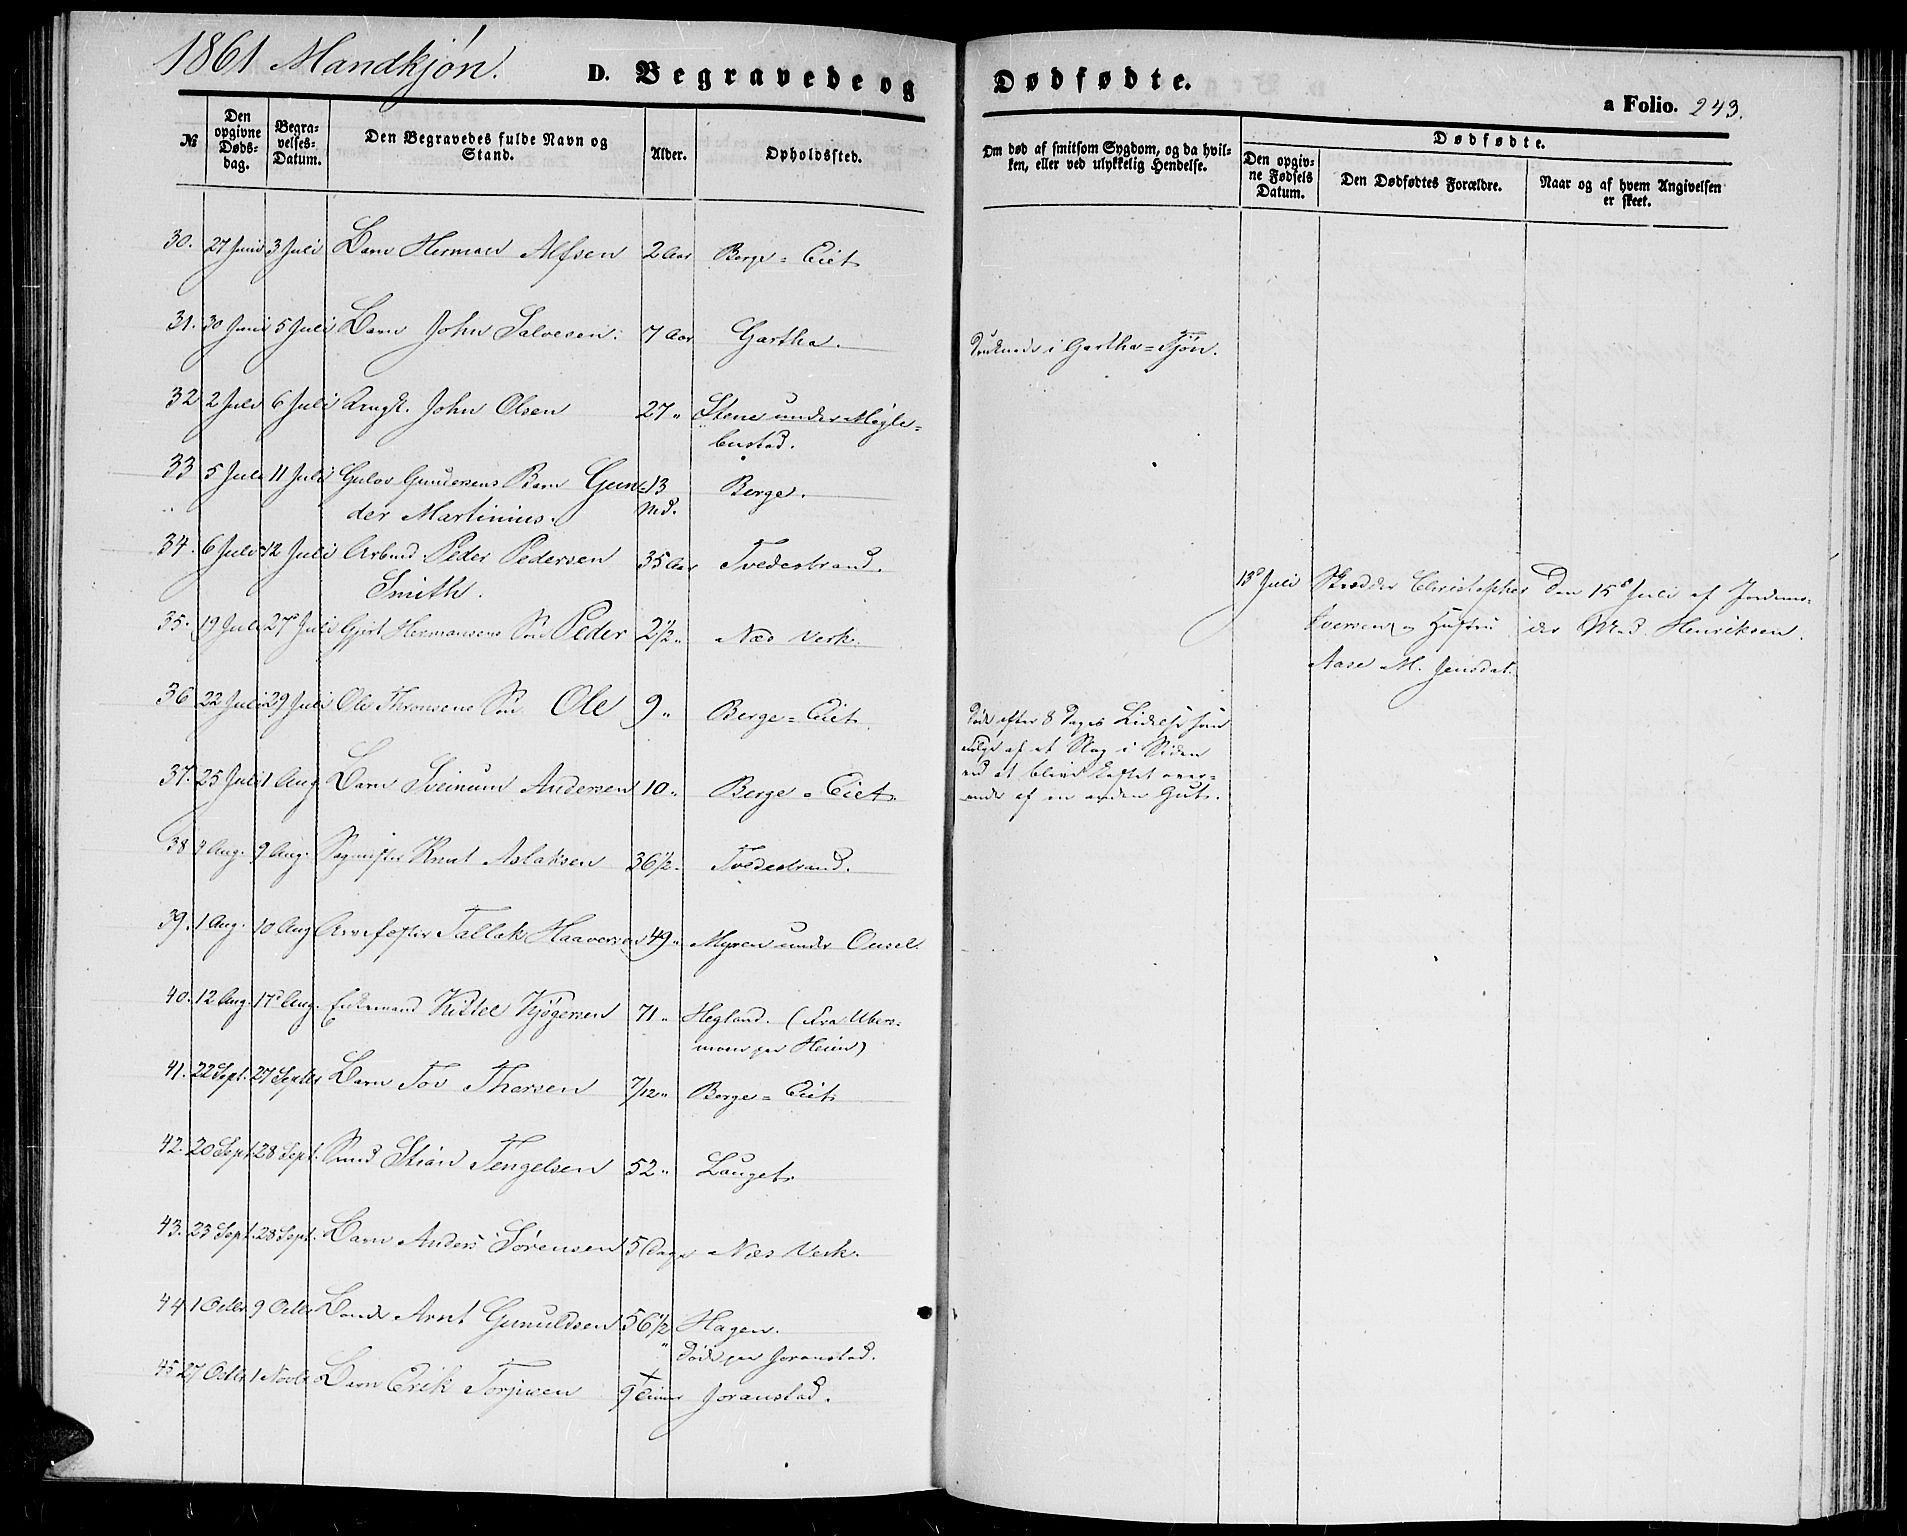 1861 Mandkjøn.
D. Begravede og Dødfødte.
a Folio. 243.
№
Den opgivne Døds-dag.
Begra-velses-Datum.
Den Begravedes fulde Navn og Stand.
Alder.
Opholdssted.
Om død af smitsom Sygdom, og da hvil-ken, eller ved ulykkelig Hendelse.
Dødfødte.
Den opgiv-ne Fødsels Datum.
Den Dødfødtes Forældre.
Naar og af hvem Angivelsen er skeet.
30. 27 Juni 3 Juli Barn Herman Alfsen 2 Aar Berge=Eiet
31. 30 Juni 5 Juli Barn John Salvesen. 7 Aar Gartha. Druknede i Gartha=Tjøn.
32 2 Juli 6 Juli Ungk. John Olsen 27 " Stene under Møgle=
bustad.
33 5 Juli 11 Juli Gulov Gundersens Barn Gun= 13 Berge.
der Martinius. Md.
34. 6 Juli 12 Juli Arbmd Peder Pedersen 35 Aar Tvedestrand.
Smith.
13d Juli Skrædder Christopher Den 15d Juli af Jordemo-
Iversen og Hustru der Md. Henriksen.
Aase M. Jensdat.
35. 19 Juli 27 Juli Gjert Hermansens Søn Peder 2 1/2 " Næs Verk.
36 22 Juli 29 Juli Ole Thronsens Søn Ole 9 " Berge=Eiet.
Døde efter 8 Dages Lidelse som
Følge af et Slag i Siden
ved at blive kastet over-
ende af en anden Gut.
37. 25 Juli 1 Aug. Barn Sveinum Andersen 10 " Berge=Eiet.
38 3 Aug. 9 Aug. Sagmester Knut Aslaksen 36 1/2. Tvedestrand.
39. 1 Aug. 10 Aug Arrefester Tallak Haaversen 49 " Myren under Ousel.
40. 12 Aug. 17d Aug. Enkemand Kittel Kjøgersen 71 " Hegland. (Fra Uber-
moen paa Heien)
41. 22 Sept. 27 Septbr Barn Tov Thorsen 7/12 " Berge=Eiet
42. 20 Sept. 28 Sept. Smed Stian Tengelsen 52 " Lauget.
43. 23 Sept. 28 Sept. Barn Anders Sörensen 5 Dage Næs Verk.
44 1 Octbr 9 Octbr Bonde Arnt Gunuldsen 56 1/2 " Hagen.
Døde paa Joranstad.
45 27 Octbr 1 Novbr Barn Erik Torjusen 9 Timer Joranstad.